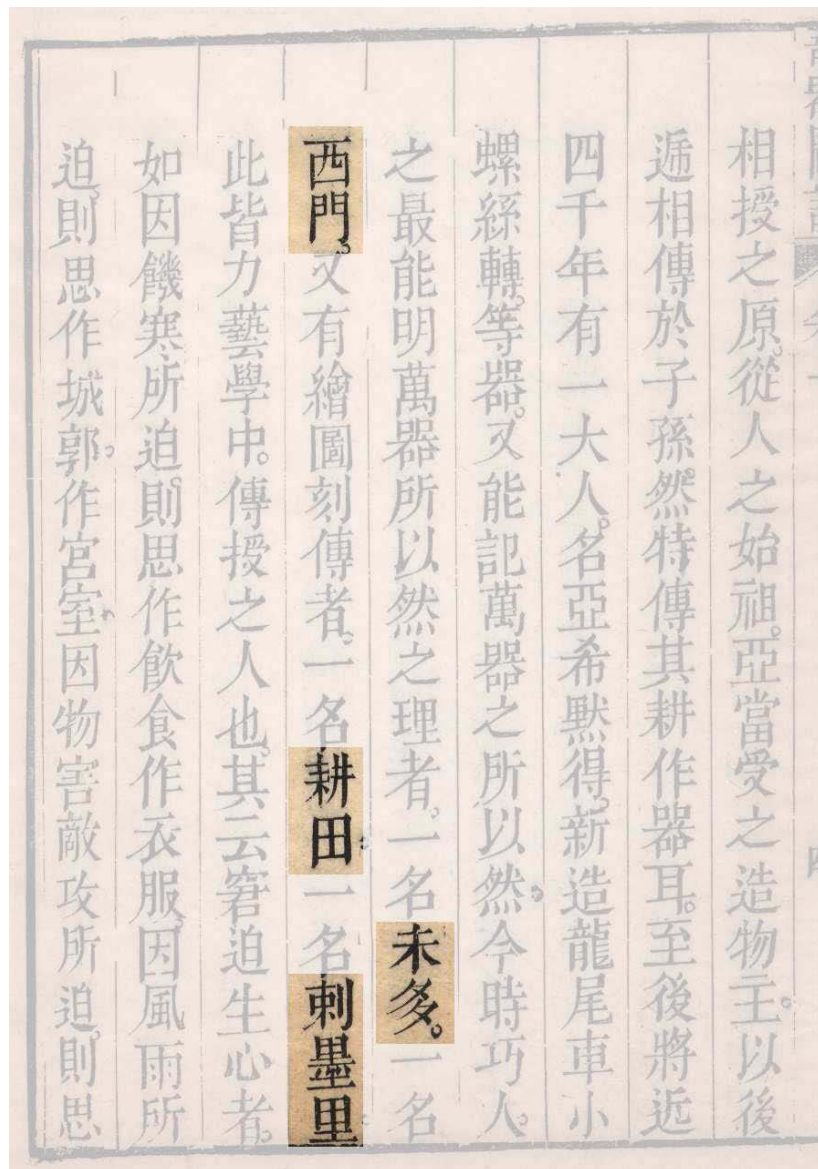 相授之原。從人之始祖。亞當受之造物主。以後
遞相傳於子孫。然特傳其耕作器耳。至後將近
四千年有一大人。名亞希黙得。新造龍尾車小
螺絲轉。等器。又能記萬器之所以然。今時巧人。
之最能明萬器所以然之理者。一名未多。一名
西門。又有繪圖刻傳者。一名耕田。一名刺墨里。
此皆力藝學中。傳授之人也。其云窘迫生心者。
如因饑寒所迫。則思作飲食作衣服。因風雨所
迫。則思作城郭。作宮室。因物害敵攻所迫。則思